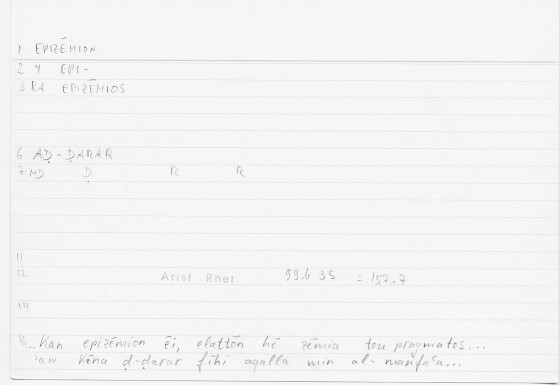 1 EPIZĒMION
2 Y EPI-
3 RA EPIZĒMIOS
6 AḌ-ḌARAR
7 MD Ḍ R R
11
12 Arist Rhet 99b 35 = 157.7
14
16 ...Kan epizēmion ēi, elattōn hē zēmia tou pragmatos...
'aw kāna ḍ-ḍarar fīhi aqalla min al-manfaʿa...